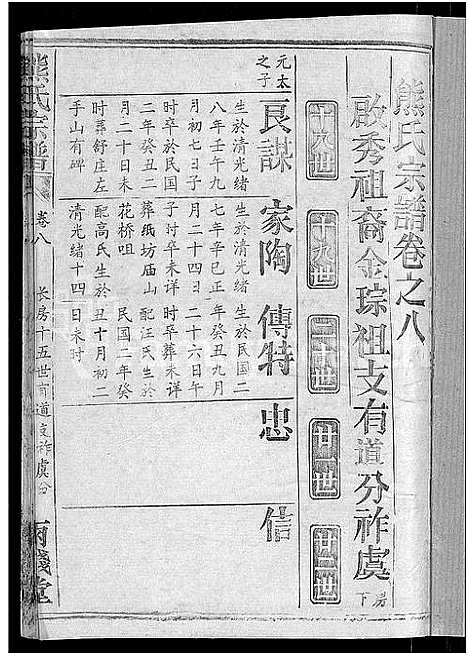 熊氏宗譜卷之八
啟秀祖裔金琮祖支有道分祚虞房下
十八世
十九世
二十世
廿一世
廿二世
元太之子
良謀
生於清光緒
八年壬午九
月初七日子
時卒於民國
二年癸丑二
月二十日未
時葬舒庄左
手山有碑
家陶
生於清光緒
七年辛巳正
月二十四日
子時卒未詳
葬紙坊庙山
花桥咀
配高氏生於
清光緒十四
傳特
生於民國二
年癸丑九月
二十六日午
時卒葬未詳
配汪氏生於
民國二年癸
丑十月初二
日未时
忠
信
熊氏宗譜
卷八
长房十五世有道支祚虞分